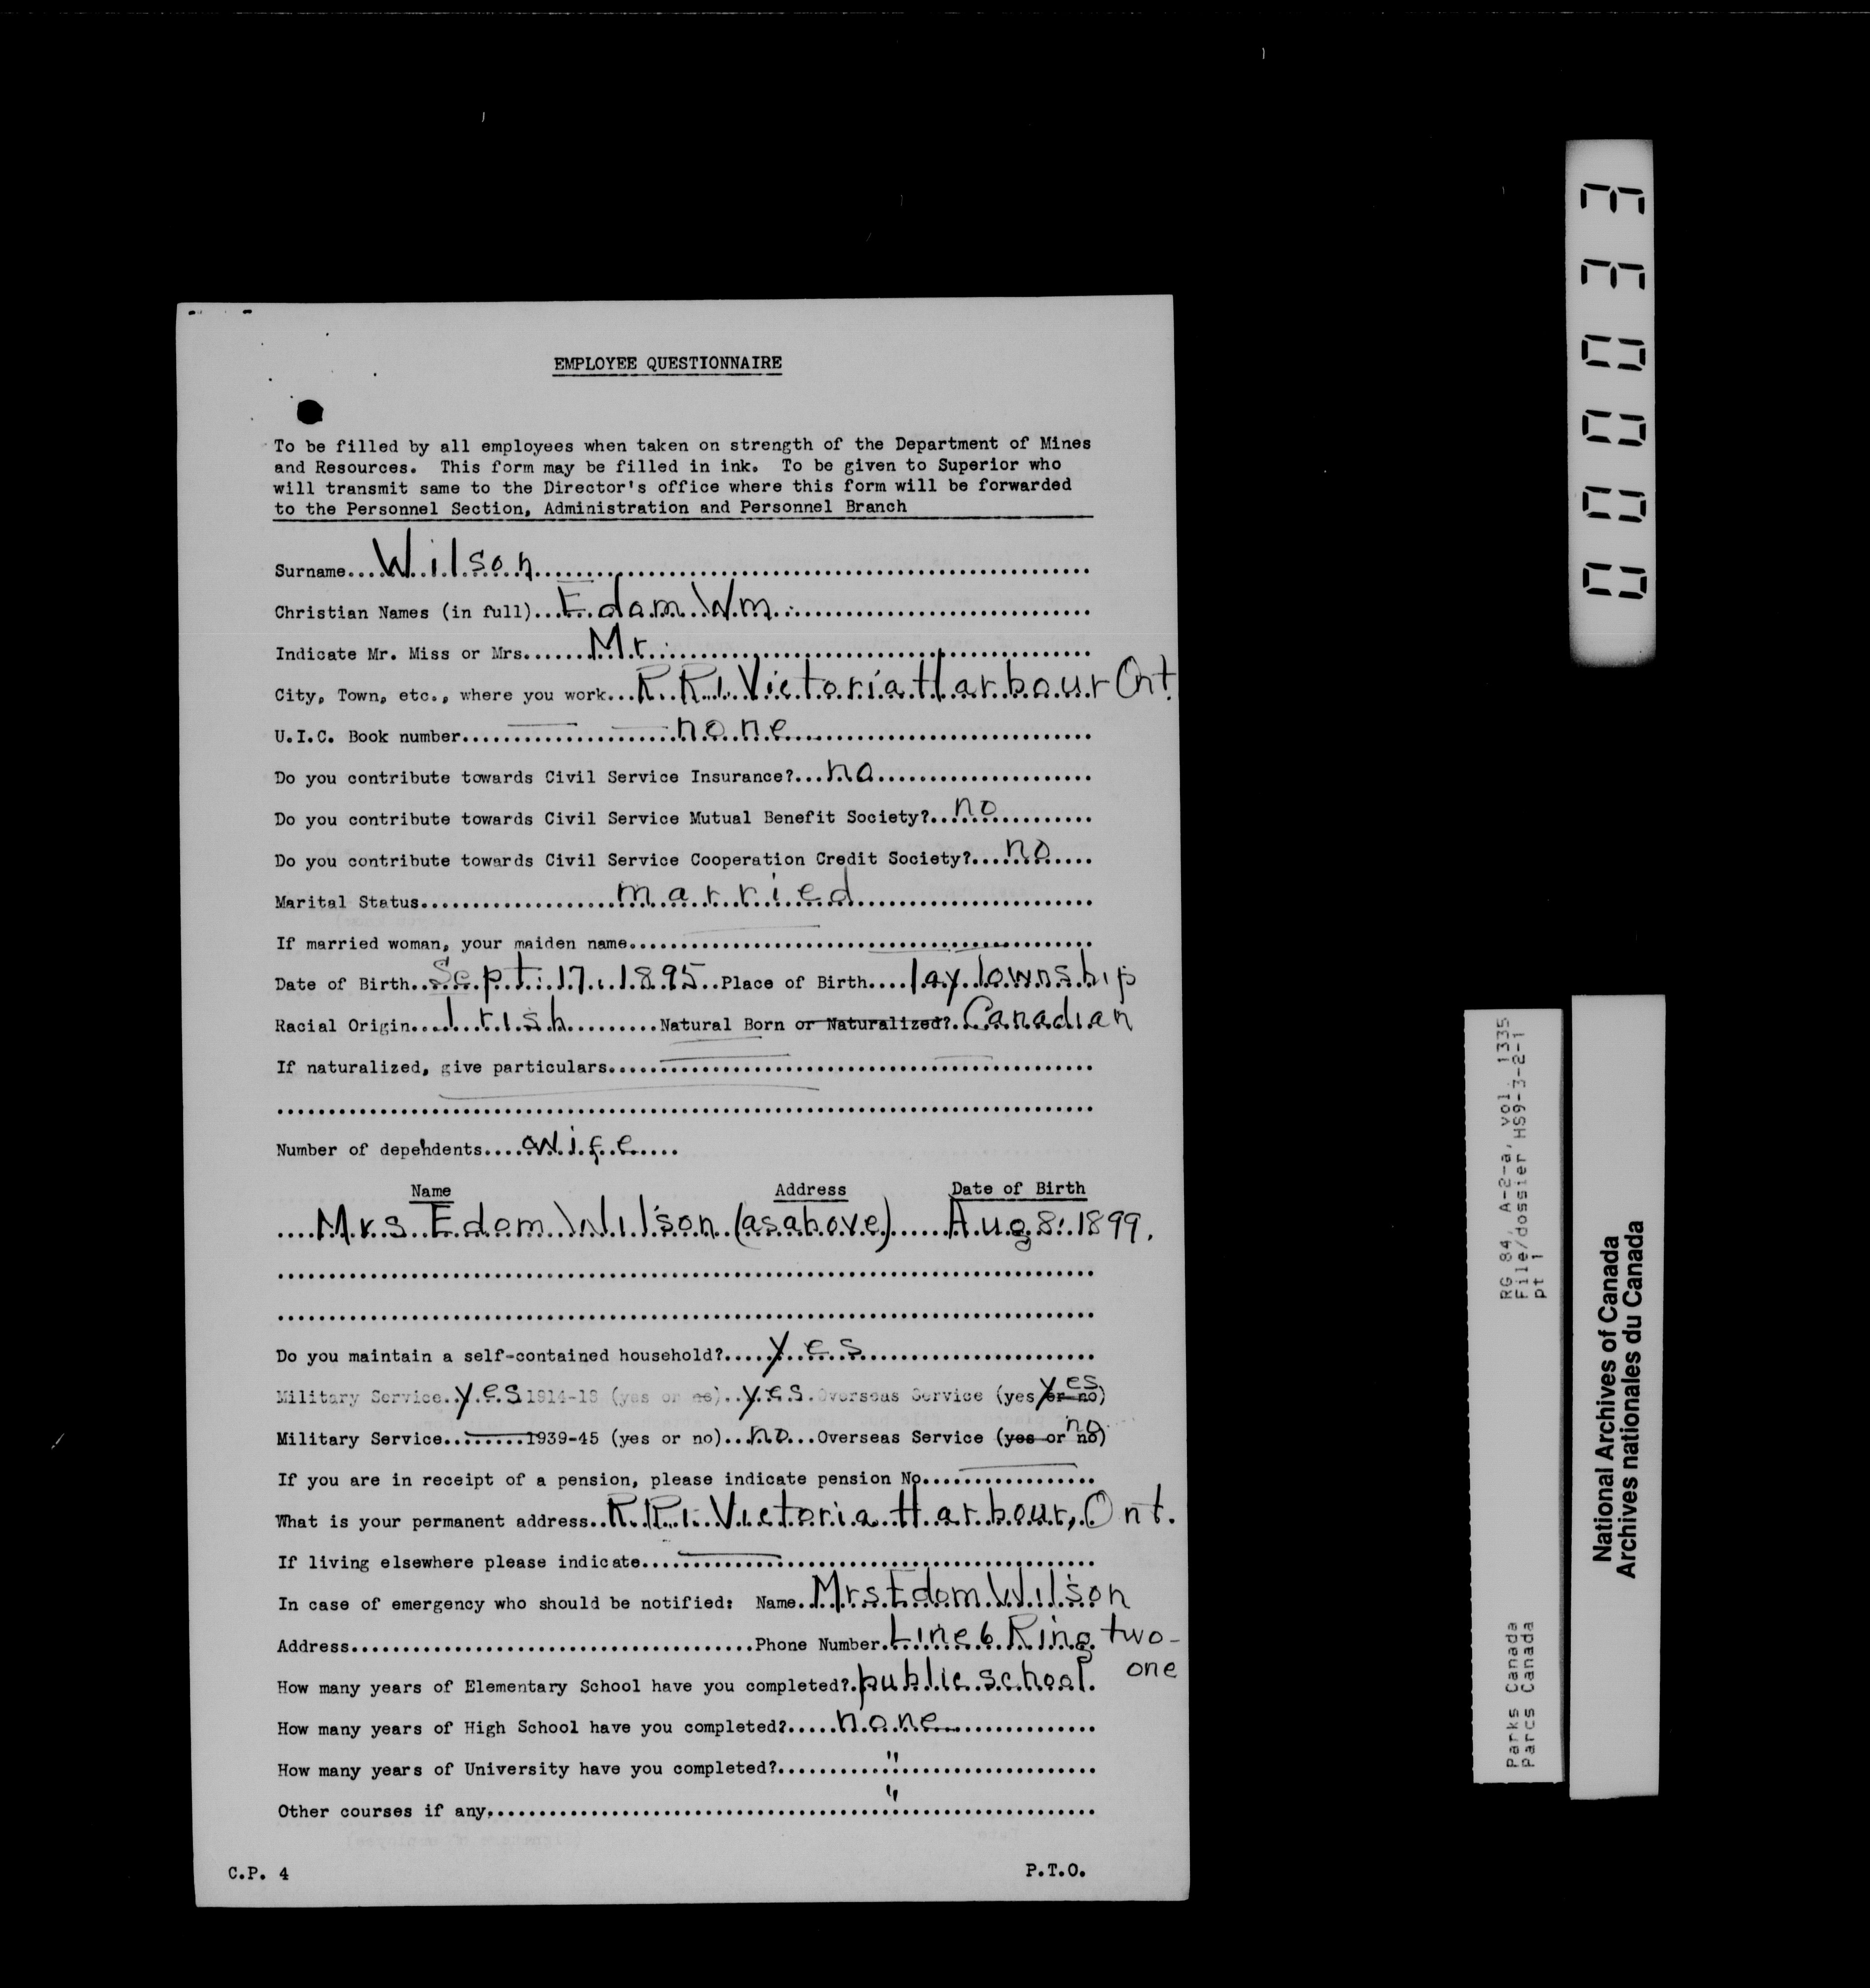 EMPLOYEE QUESTIONNAIRE
To be filled by all employees when taken on strength of the Department of Mines
and Resources. This form may be filled in ink. To be given to Superior who
will transmit same to the Director's office where this form will be forwarded
to the Personnel Section, Administration and Personnel Branch
Surname....Wilson
Christian Names (in full)...Edom Wm.
Indicate Mr. Miss or Mrs.......Mr.
City, Town, etc., where you work...R.R.1. Victoria Harbour Ont.
U.I.C. Book number..........none
Do you contribute towards Civil Service Insurance?...no
Do you contribute towards Civil Service Mutual Benefit Society?..no
Do you contribute towards Civil Service Cooperation Credit Society?....no
Marital Status..........married
If married woman, your maiden name..........
Date of Birth..Sept. 17. 1895..Place of Birth....Tay Township
Racial Origin....Irish..........Natural Born or Naturalized?.Canadian
If naturalized, give particulars..........
Number of dependents....wife....
Name Address Date of Birth
....Mrs. Edom Wilson (as above).....Aug 8. 1899.
Do you maintain a self-contained household?.....yes
Military Service..yes 1914-18 (yes or no)..yes.Overseas Service (yes or no) yes
Military Service........1939-45 (yes or no)...no...Overseas Service (yes or no) no
If you are in receipt of a pension, please indicate pension No..........
What is your permanent address..R.R.1. Victoria Harbour, Ont.
If living elsewhere please indicate..........
In case of emergency who should be notified: Name.Mrs Edom Wilson
Address..........Phone Number.Line 6 Ring two-
one
How many years of Elementary School have you completed?.public school.
How many years of High School have you completed?.....none
How many years of University have you completed?.........."
Other courses if any.........."
C.P. 4 P.T.O.
RG 84, A-2-a, vol. 1335
File/dossier HS9-3-2-1
pt 1
Parks Canada
Parcs Canada
National Archives of Canada
Archives nationales du Canada